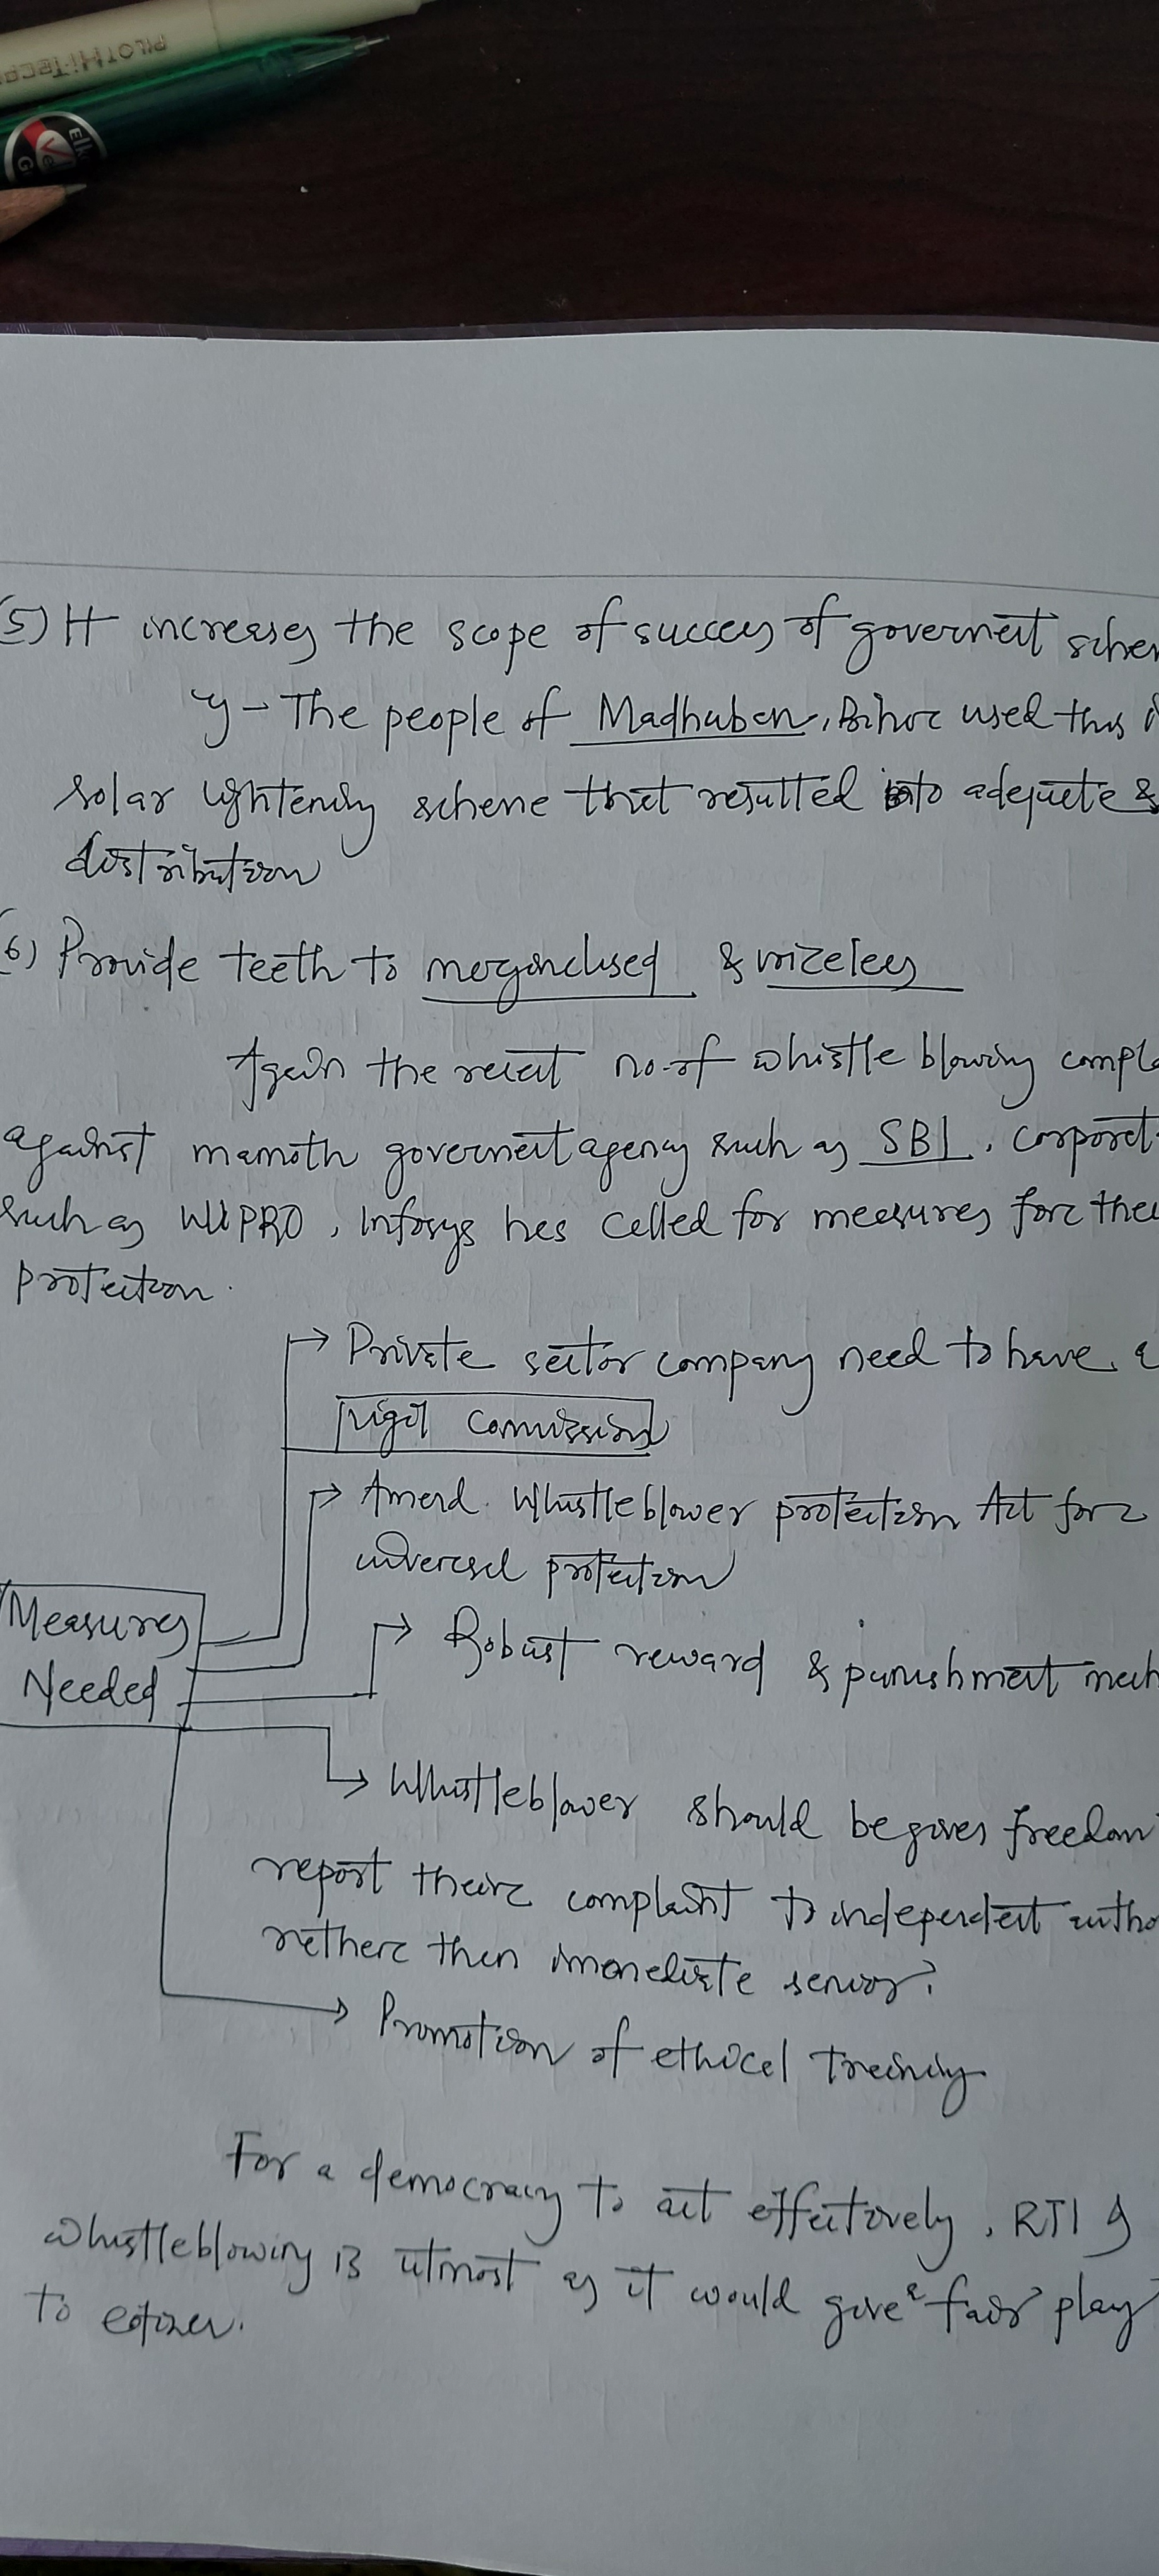 PILOT Hi-Tecpo
Elk
Ve
G
(5) It increases the scope of success of government schem
eg - The people of Madhuban, Bihar used this i
solar lightening scheme that resulted into adequate &
distribution
(6) Provide teeth to marginalised & voiceless
Again the recent no. of whistle blowing compla
against mamoth government agency such as SBI, corporat
such as WIPRO, Infosys has called for measures for thei
protection.
Private sector company need to have a
Vigil Commission
Amend Whistleblower protection Act for
universal protection
Measures
Needed
Robust reward & punishment mech
Whistleblower should be given freedom
report their complaint to independent autho
rather than immediate senior.
Promotion of ethical training
For a democracy to act effectively, RTI &
whistleblowing is utmost as it would give a fair play
to citizen.